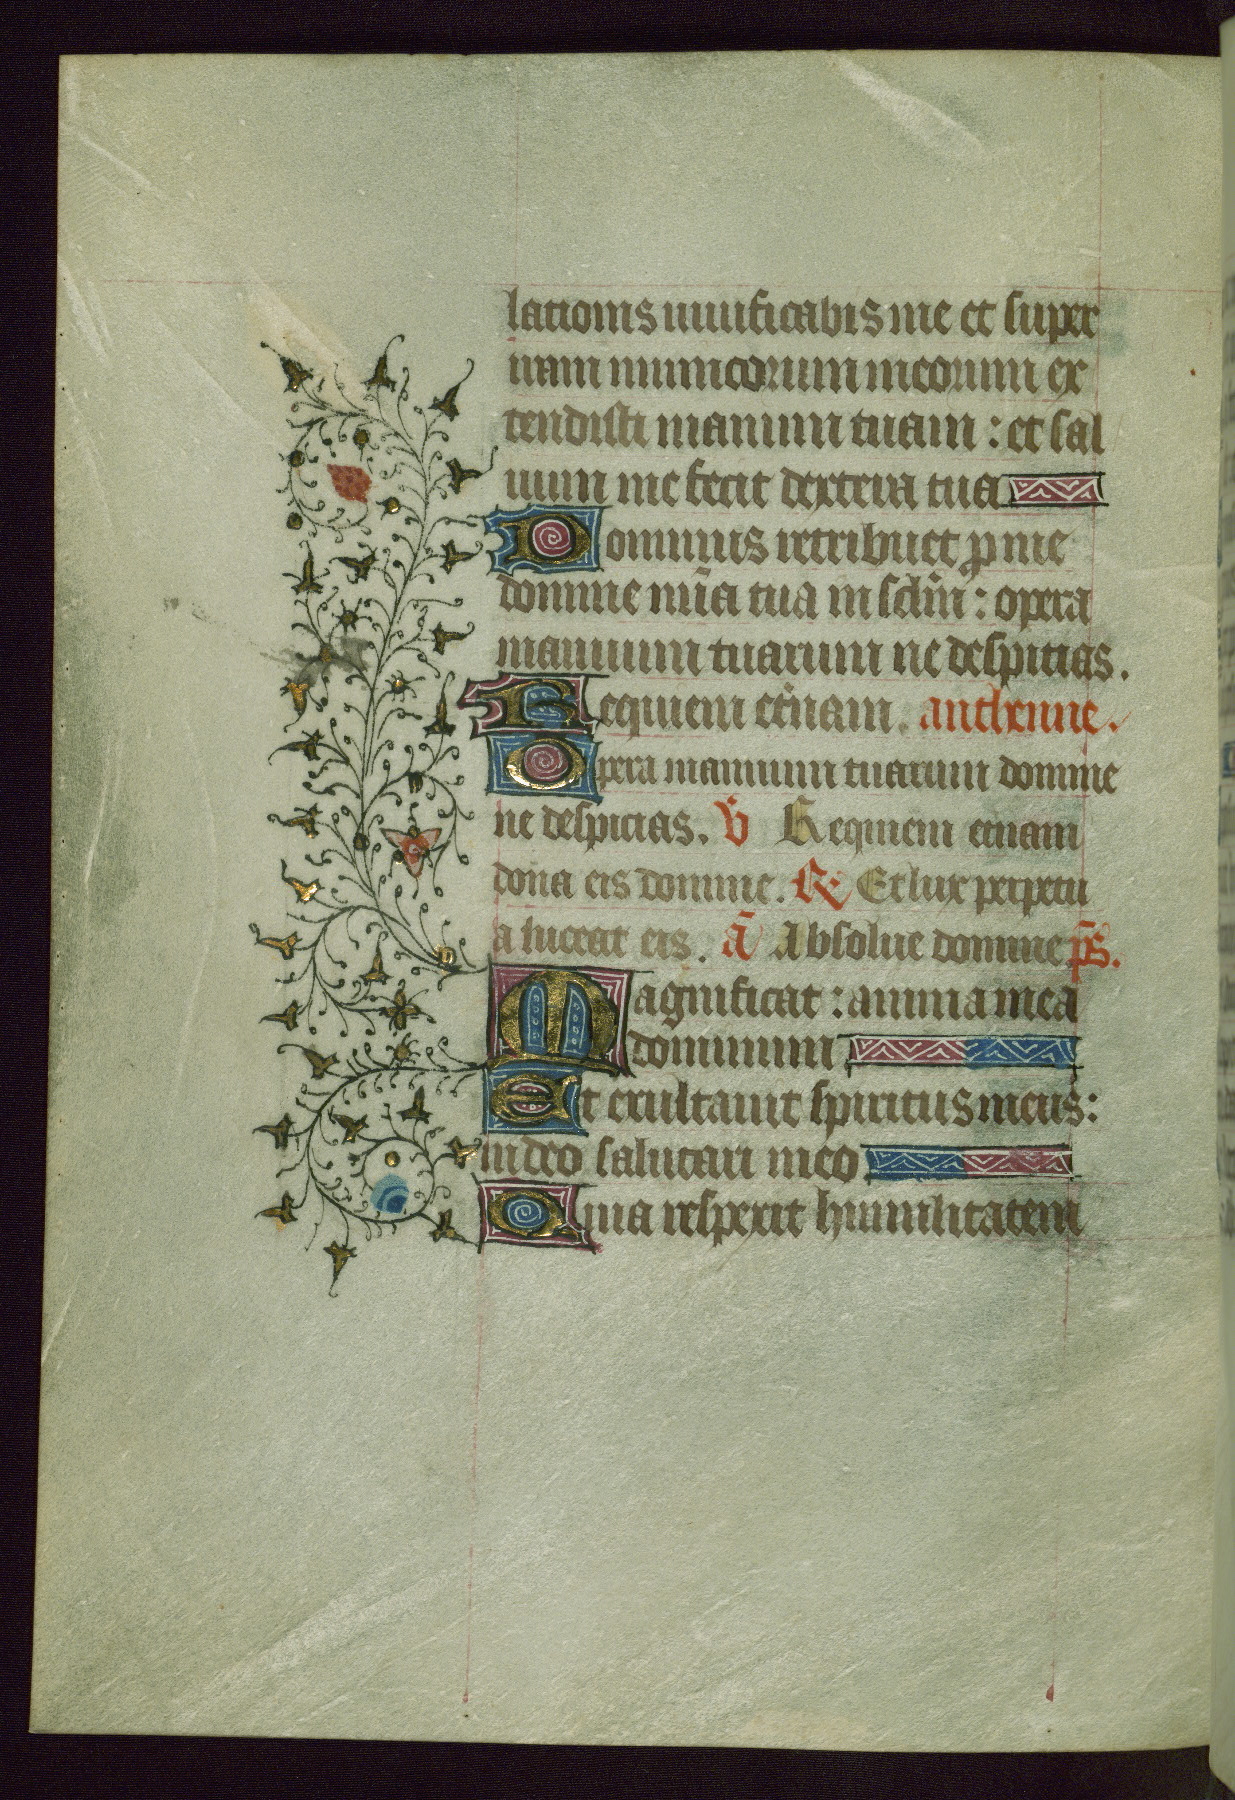 lationis uiuificabis me et super
iram inimicorum meorum ex
tendisti manum tuam : et sal
uum me fecit dextera tua
Dominus retribuet ꝓ me
domine mīa tua in sclm̄ : opera
manuum tuarum ne despicias.
Requiem et̄nam. anthenne.
Opera manuum tuarum domine
ne despicias. v̄ Requiem etnam
dona eis domine. R̷ Et lux perpetu
a luceat eis. ā Absolue domine p̄s.
Magnificat : anima mea
dominum
Et exultauit spiritus meus :
in deo salutari meo
Quia respexit humilitatem